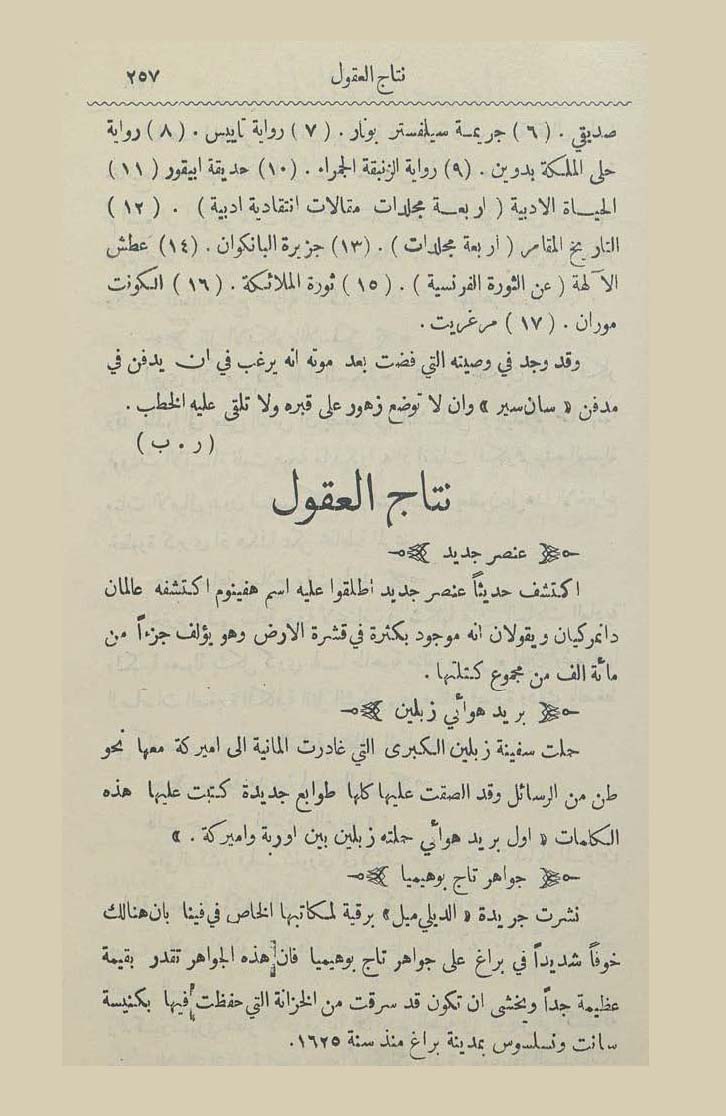 نتاج العقول ٢٥٧
صديقي . ( ٦ ) جريمة سيلفستر بونار . ( ٧ ) رواية تاييس . ( ٨ ) رواية
حلى الملكة بدوين . (٩) رواية الزنبقة الحمراء . (١٠) حديقة ابيقور ( ١١ )
الحياة الادبية ( اربعة مجلدات مقالات انتقادية ادبية ) . ( ١٢ )
التاريخ المقامر ( اربعة مجلدات ) . (١٣) جزيرة البانكوان . (١٤) عطش
الآلهة ( عن الثورة الفرنسية ) . ( ١٥ ) ثورة الملائكة . ( ١٦ ) الكونت
موران . ( ١٧ ) مرغريت .
وقد وجد في وصيته التي فضت بعد موته انه يرغب في ان يدفن في
مدفن « سان سير » وان لا توضع زهور على قبره ولا تلقى عليه الخطب .
( ر . ب )
نتاج العقول
عنصر جديد
اكتشف حديثاً عنصر جديد اطلقوا عليه اسم هفينوم اكتشفه عالمان
دانمركيان ويقولان انه موجود بكثرة في قشرة الارض وهو يؤلف جزءاً من
مائة الف من مجموع كتلتها .
بريد هوائي زبلين
حملت سفينة زبلين الكبرى التي غادرت المانية الى اميركة معها نحو
طن من الرسائل وقد الصقت عليها كلها طوابع جديدة كتبت عليها هذه
الكلمات « اول بريد هوائي حملته زبلين بين اوربة واميركة . »
جواهر تاج بوهيميا
نشرت جريدة « الديلي ميل » برقية لمكاتبها الخاص في فينا بان هنالك
خوفاً شديداً في براغ على جواهر تاج بوهيميا فان هذه الجواهر تقدر بقيمة
عظيمة جداً ويخشى ان تكون قد سرقت من الخزانة التي حفظت فيها بكنيسة
سانت ونسلسوس بمدينة براغ منذ سنة ١٦٢٥ .